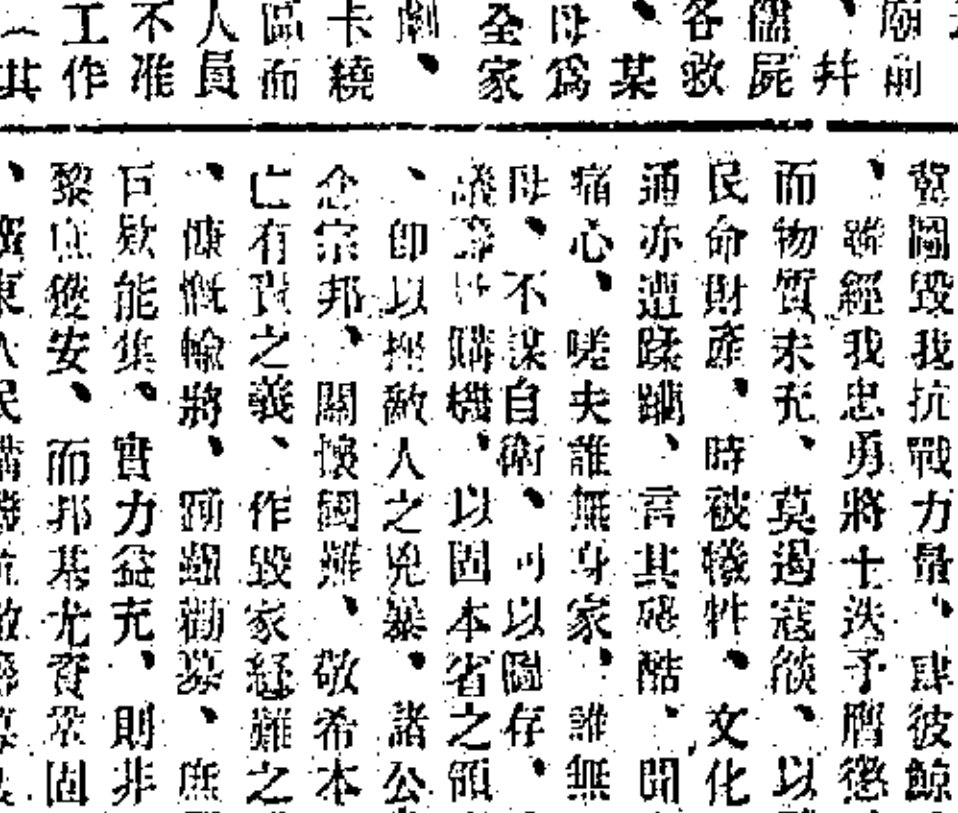 廟前
、井
儒屍
各救
、某
母爲
全家
劇、
卡繞
區而
人員
不准
工作
︵其
冀圖毀我抗戰力量、肆彼鯨
、聯經我忠勇將士迭予膺懲
而物質未充、莫遏寇燄、以
民命財產、時被犧牲、文化
通亦遭蹂躪、言其慘酷、聞
痛心、嗟夫誰無身家、誰無
母、不謀自衛、可以圖存、
議籌 購機、以固本省之領
、卽以挫敵人之兇暴、諸公
念宗邦、關懷國難、敬希本
亡有責之義、作毀家紓難之
、慷慨輸將、踴躍勸募、庶
巨欵能集、實力益充、則非
黎庶獲安、而邦基尤資鞏固